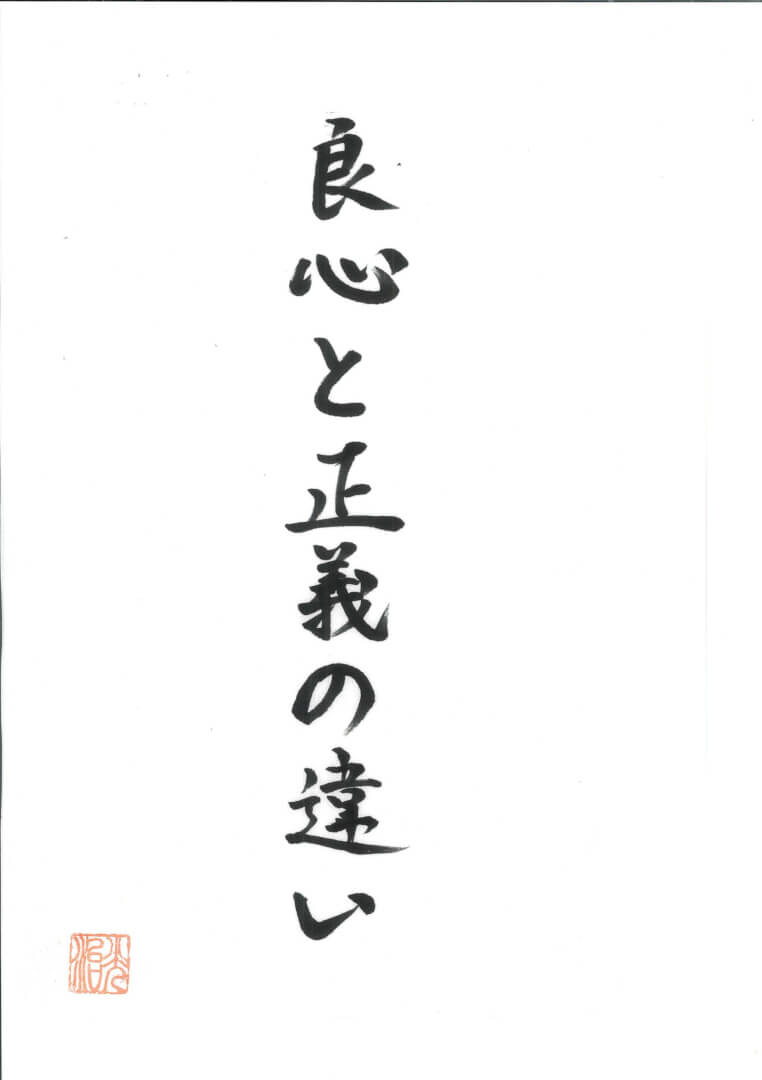 良心と正義の違い